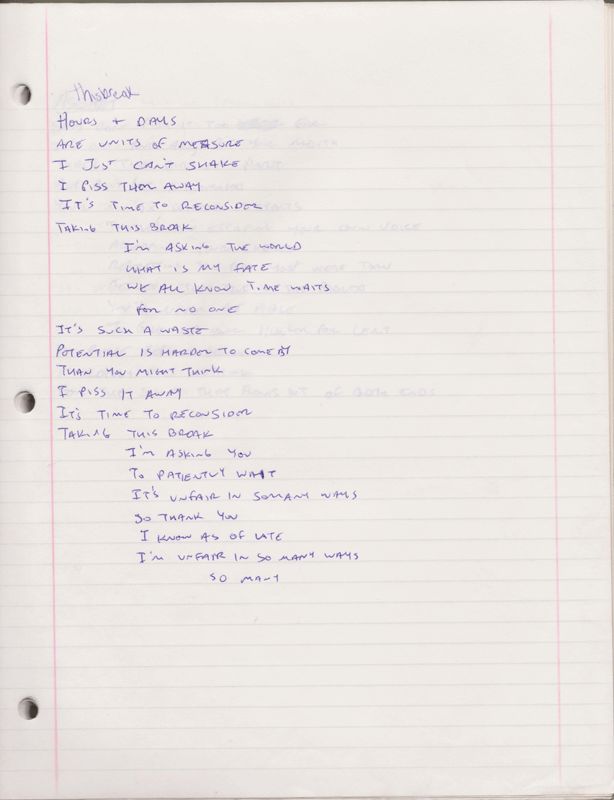 thisbreak
HOURS + DAYS
ARE UNITS OF MEASURE
I JUST CAN'T SHAKE
I PISS THEM AWAY
IT'S TIME TO RECONSIDER
TAKING THIS BREAK
I'M ASKING THE WORLD
WHAT IS MY FATE
WE ALL KNOW TIME WAITS
FOR NO ONE
IT'S SUCH A WASTE
POTENTIAL IS HARDER TO COME BY
THAN YOU MIGHT THINK
I PISS IT AWAY
IT'S TIME TO RECONSIDER
TAKING THIS BREAK
I'M ASKING YOU
TO PATIENTLY WAIT
IT'S UNFAIR IN SO MANY WAYS
SO THANK YOU
I KNOW AS OF LATE
I'M UNFAIR IN SO MANY WAYS
SO MANY